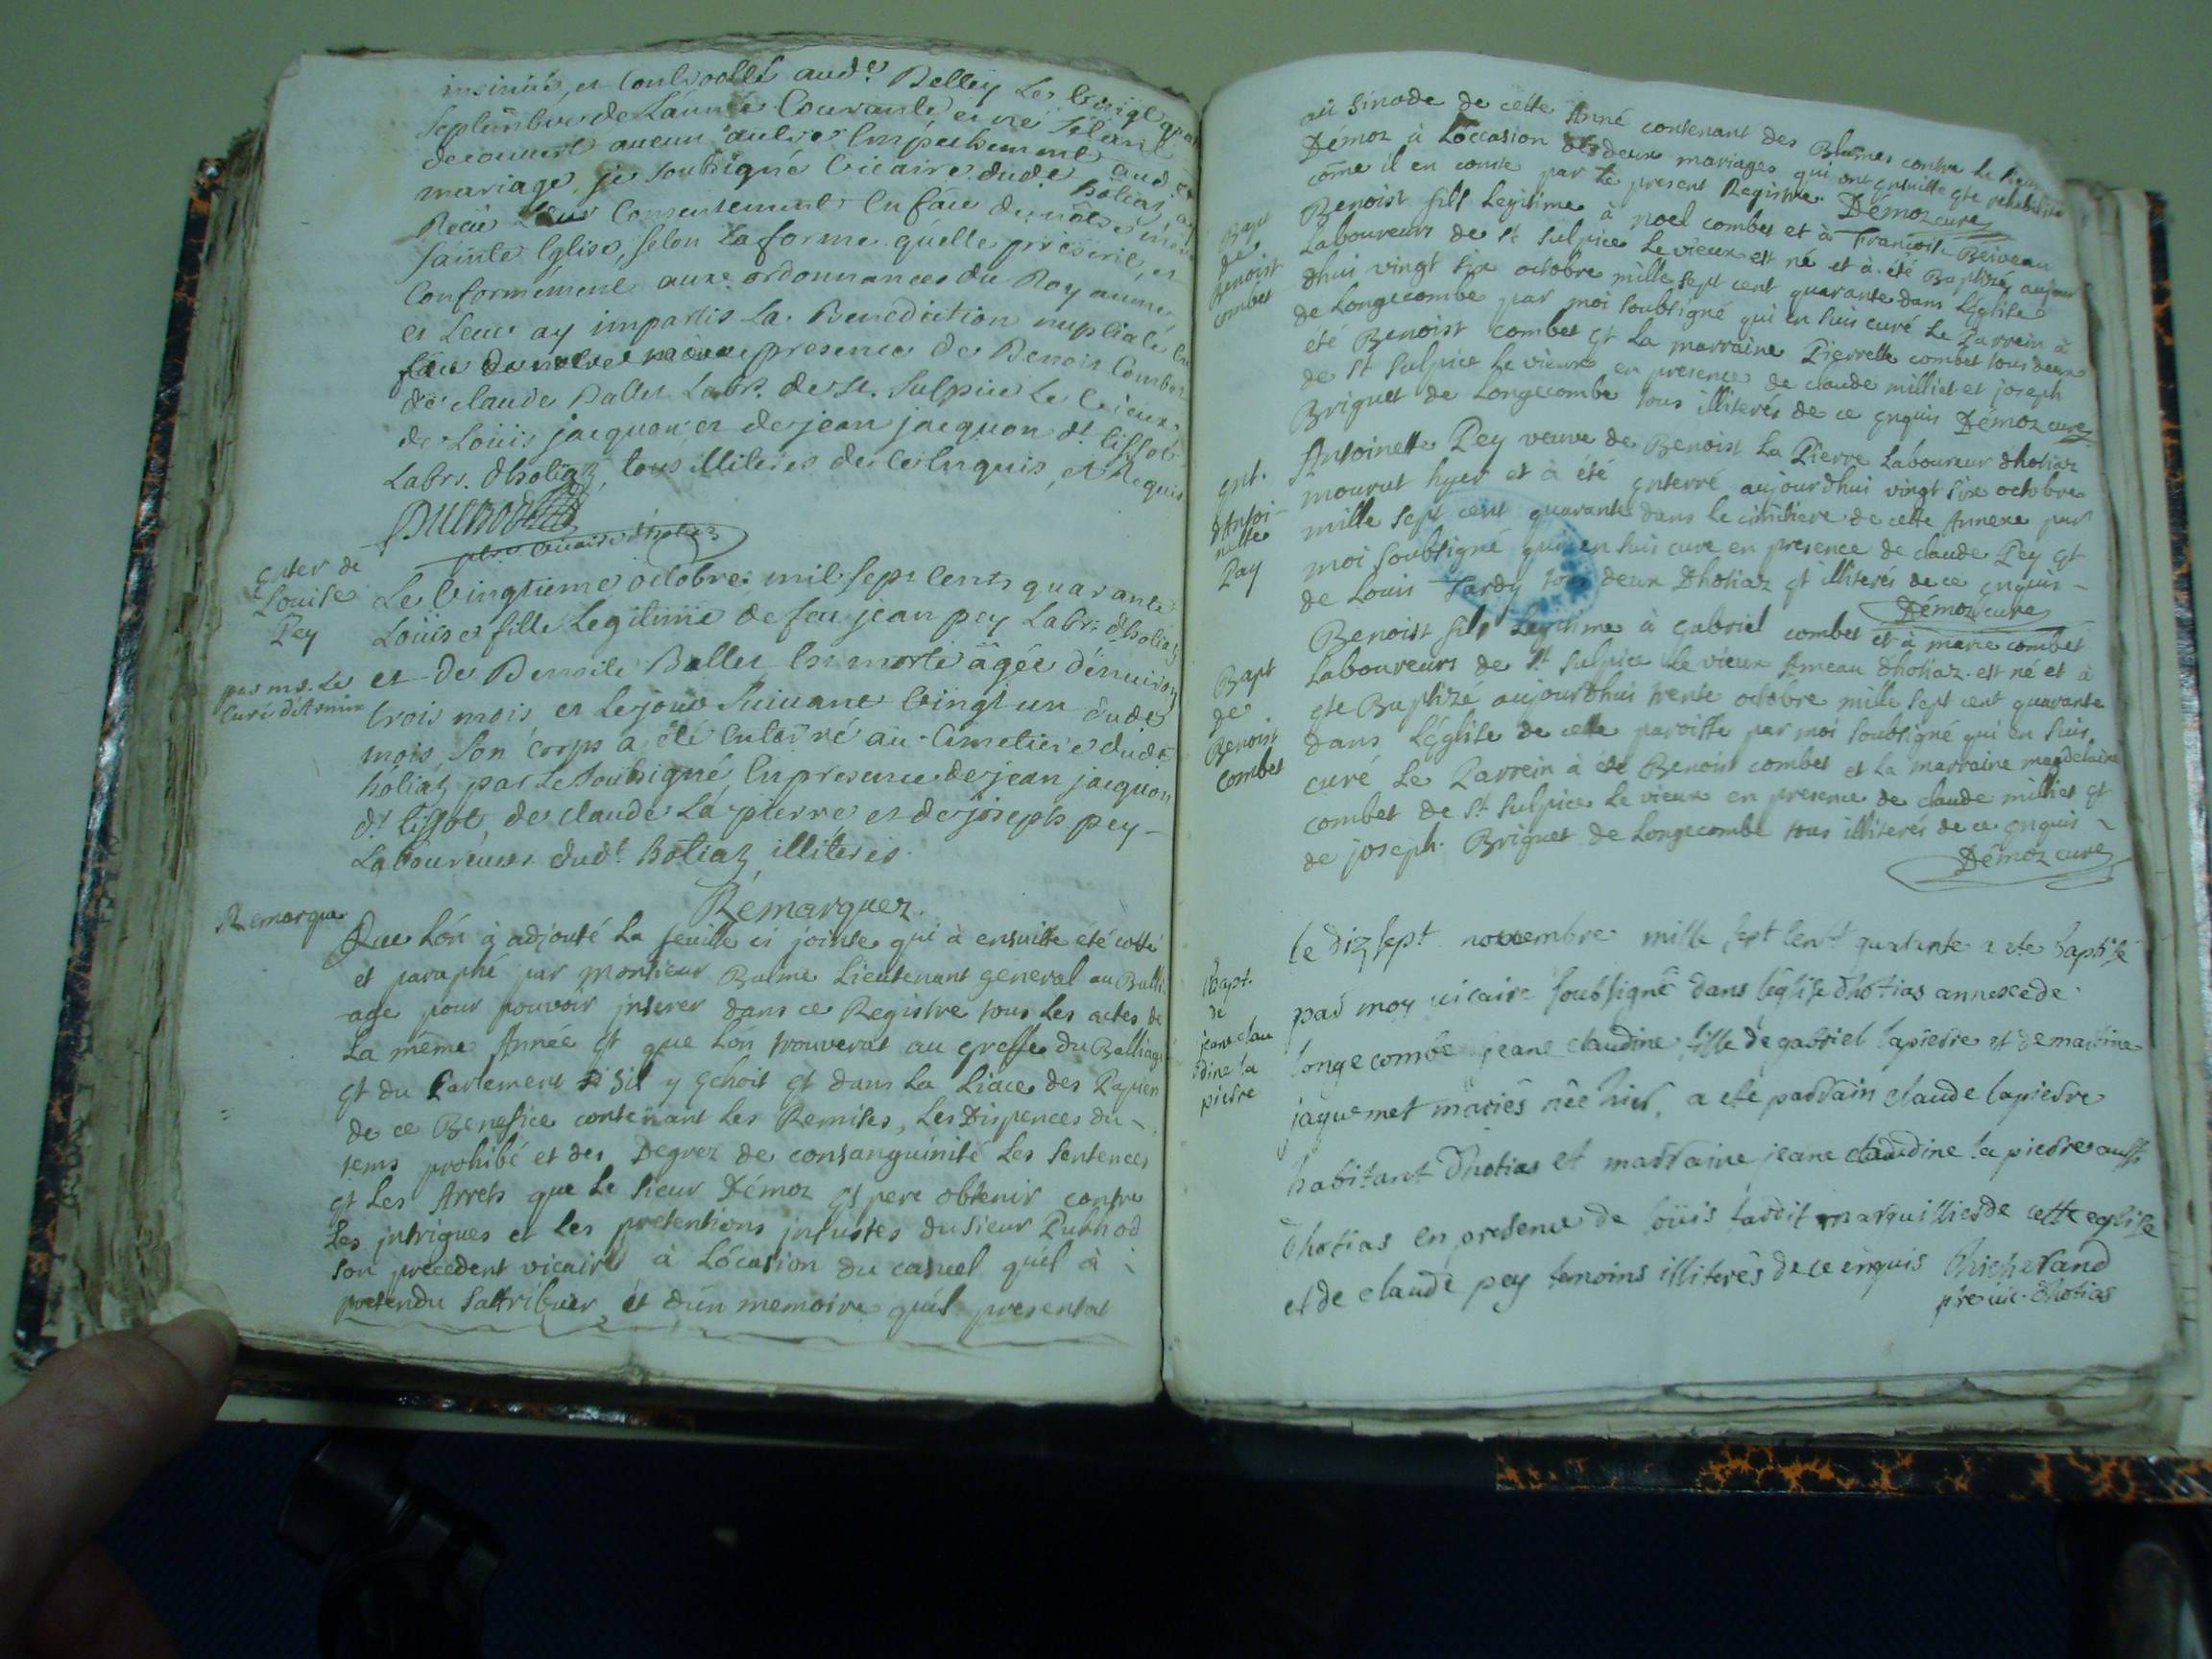 insinué, et Controollé aud.t Belley Le vingt quatre
Septembre de Lannée Courante, et ne s'étant
decouvert aucun autre Empechement aud.t
mariage, je soubsigné Vicaire dud.t hotiaz, ay
Recu Leur Consentement En face de nôtre mere
Sainte Eglise, selon La forme quelle prescrit, et
Conformement aux ordonnances du Royaume
et Leur ay impartis La Benediction nuptiale
presence de Benoit Combet
de claude Ballet Labr. de St. Sulpice Le Vieux
de Loüis jacquon et de jean jacquon d.t tissot
Labrs. dhotiaz, tous illiteres de ce Enquis, et Requis
ptre vicaire dhotiaz
Enter de
Louise
Pey
par mr. Le
Curé
Le Vingtieme octobre mil sept Cents quarante
Loüise fille Legitime de feu jean pey Labr. dhotiaz
et de Benoite Ballet Est morte agée d'environ
trois mois et Le jour Suivant Vingt un dud.t
mois, son corps a été Enterré au Cimetiere dud.t
hotiaz par Le soubsigné, En presence de jean jacquon
d.t tissot, de claude La pierre et de joseph pey
Laboureurs dud.t hotiaz illiteres.
Rémarquez.
Remarque
Que Lón à adjouté La feuille ci jointe qui à ensuitte été cotté
et paraphé par Monsieur Balme Lieutenant general au Balli-
age pour pouvoir jnserer dans ce Registre tous Les actes de
La même Année et que Lón trouverat au greffe du Balliage
et du Parlement si sil y échoit et dans La Liace des Papiers
de ce Benefice contenant Les Remises, Les Dispences du
tems prohibé et des Degrez de consanguinité Les sentences
et Les Arrets que Le sieur Démoz espere obtenir contre
Les jntrigues et Les pretentions jnjustes du sieur Purhod
son precedent vicaire à Lócasion du casuel quíl à
pretendu sattribuer et dún memoire quíl presentat
aù sinode de cette Anné contenant des Blames contre Le sieur
Démoz à Lóccasion des deux mariages qui ont ensuitte été
côme il en conste par Le present Registre. Démoz curé
Bapt
de
Benoist
combet
Benoist fils Legitime à noel combet et à Françoise
Laboureurs de St Sulpice Le vieux est né et à été Baptizé aujour
dhui vingt six octobre mille sept cent quarante dans Léglise
de Longecombe par moi soubsigné qui en suis curé Le Parrein à
été Benoist combet et La marraine Pierrette combet tous deux
de St Sulpice Le vieux en presence de claude milliet et joseph
Briguet de Longecombe tous illiterés de ce enquis Démoz curé
Ent.
dAntoi-
nette
Pay
Antoinette Pey veuve de Benoist La Pierre Laboureur dhotiaz
mourut hyer et à été enterré aujourdhui vingt six octobre
mille sept cent quarante dans Le cimetiere de cette Annexe par
moi soubsigné qui en suis curé en presence de claude Pey et
de Louis Tardy tous deux Dhotiaz et illiterés de ce enquis
Démoz curé
Bapt
de
Benoist
Combet
Benoist fils Legitime à gabriel combet et à marie combet
Laboureurs de St Sulpice Le vieux Ameau dhotiaz est né et à
été Baptizé aujourdhui trente octobre mille sept cent quarante
dans Léglise de cette paroisse par moi soubsigné qui en suis
curé Le Parrein à été Benoist combet et La marraine magdelaine
combet de St Sulpice Le vieux en presence de claude milliet et
de joseph Briguet de Longecombe tous illiterés de ce enquis
Démoz curé
Bapt.
de
jeane clau
dine la
pierre
le dix sept novembre mille sept cent quarante a eté baptisé
par moy vicaire soubsigné dans léglise dhotias annexe de
longecombe jeane claudine fille de gabriel lapierre et de martine
jaquemet mariés née hier, a eté parrain claude lapierre
habitant dhotias et marraine jeane claudine la pierre aussi
dhotias en presence de loüis tardit marguillier de cette eglise
et de claude pey temoins illiterés de ce enquis Richerand
ptre vic. dhotias